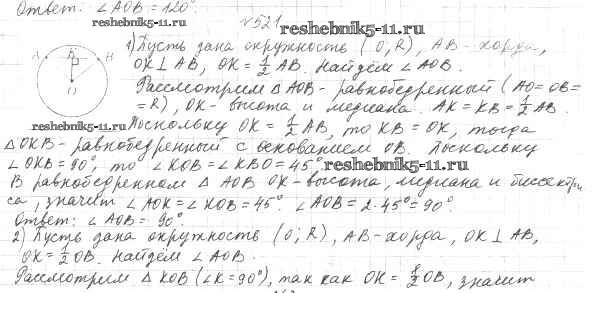 Ответ: ∠AOB = 120°
№521
reshebnik5-11.ru
1) Пусть дана окружность (O, R), AB - хорда,
OK ⊥ AB, OK = 1/2 AB. Найдём ∠AOB.
Рассмотрим △AOB - равнобедренный (AO = OB =
= R), OK - высота и медиана. AK = KB = 1/2 AB.
A K B O
reshebnik5-11.ru
Поскольку OK = 1/2 AB, то KB = OK, тогда
△OKB - равнобедренный с основанием OB. Поскольку
∠OKB = 90°, то ∠KOB = ∠KBO = 45°.
reshebnik5-11.ru
В равнобедренном △AOB OK - высота, медиана и биссектри
са, значит ∠AOK = ∠KOB = 45° ∠AOB = 2·45° = 90°.
Ответ: ∠AOB = 90°
2) Пусть дана окружность (O; R), AB - хорда, OK ⊥ AB,
OK = 1/2 OB. Найдём ∠AOB.
Рассмотрим △KOB (∠K = 90°), так как OK = 1/2 OB, значит